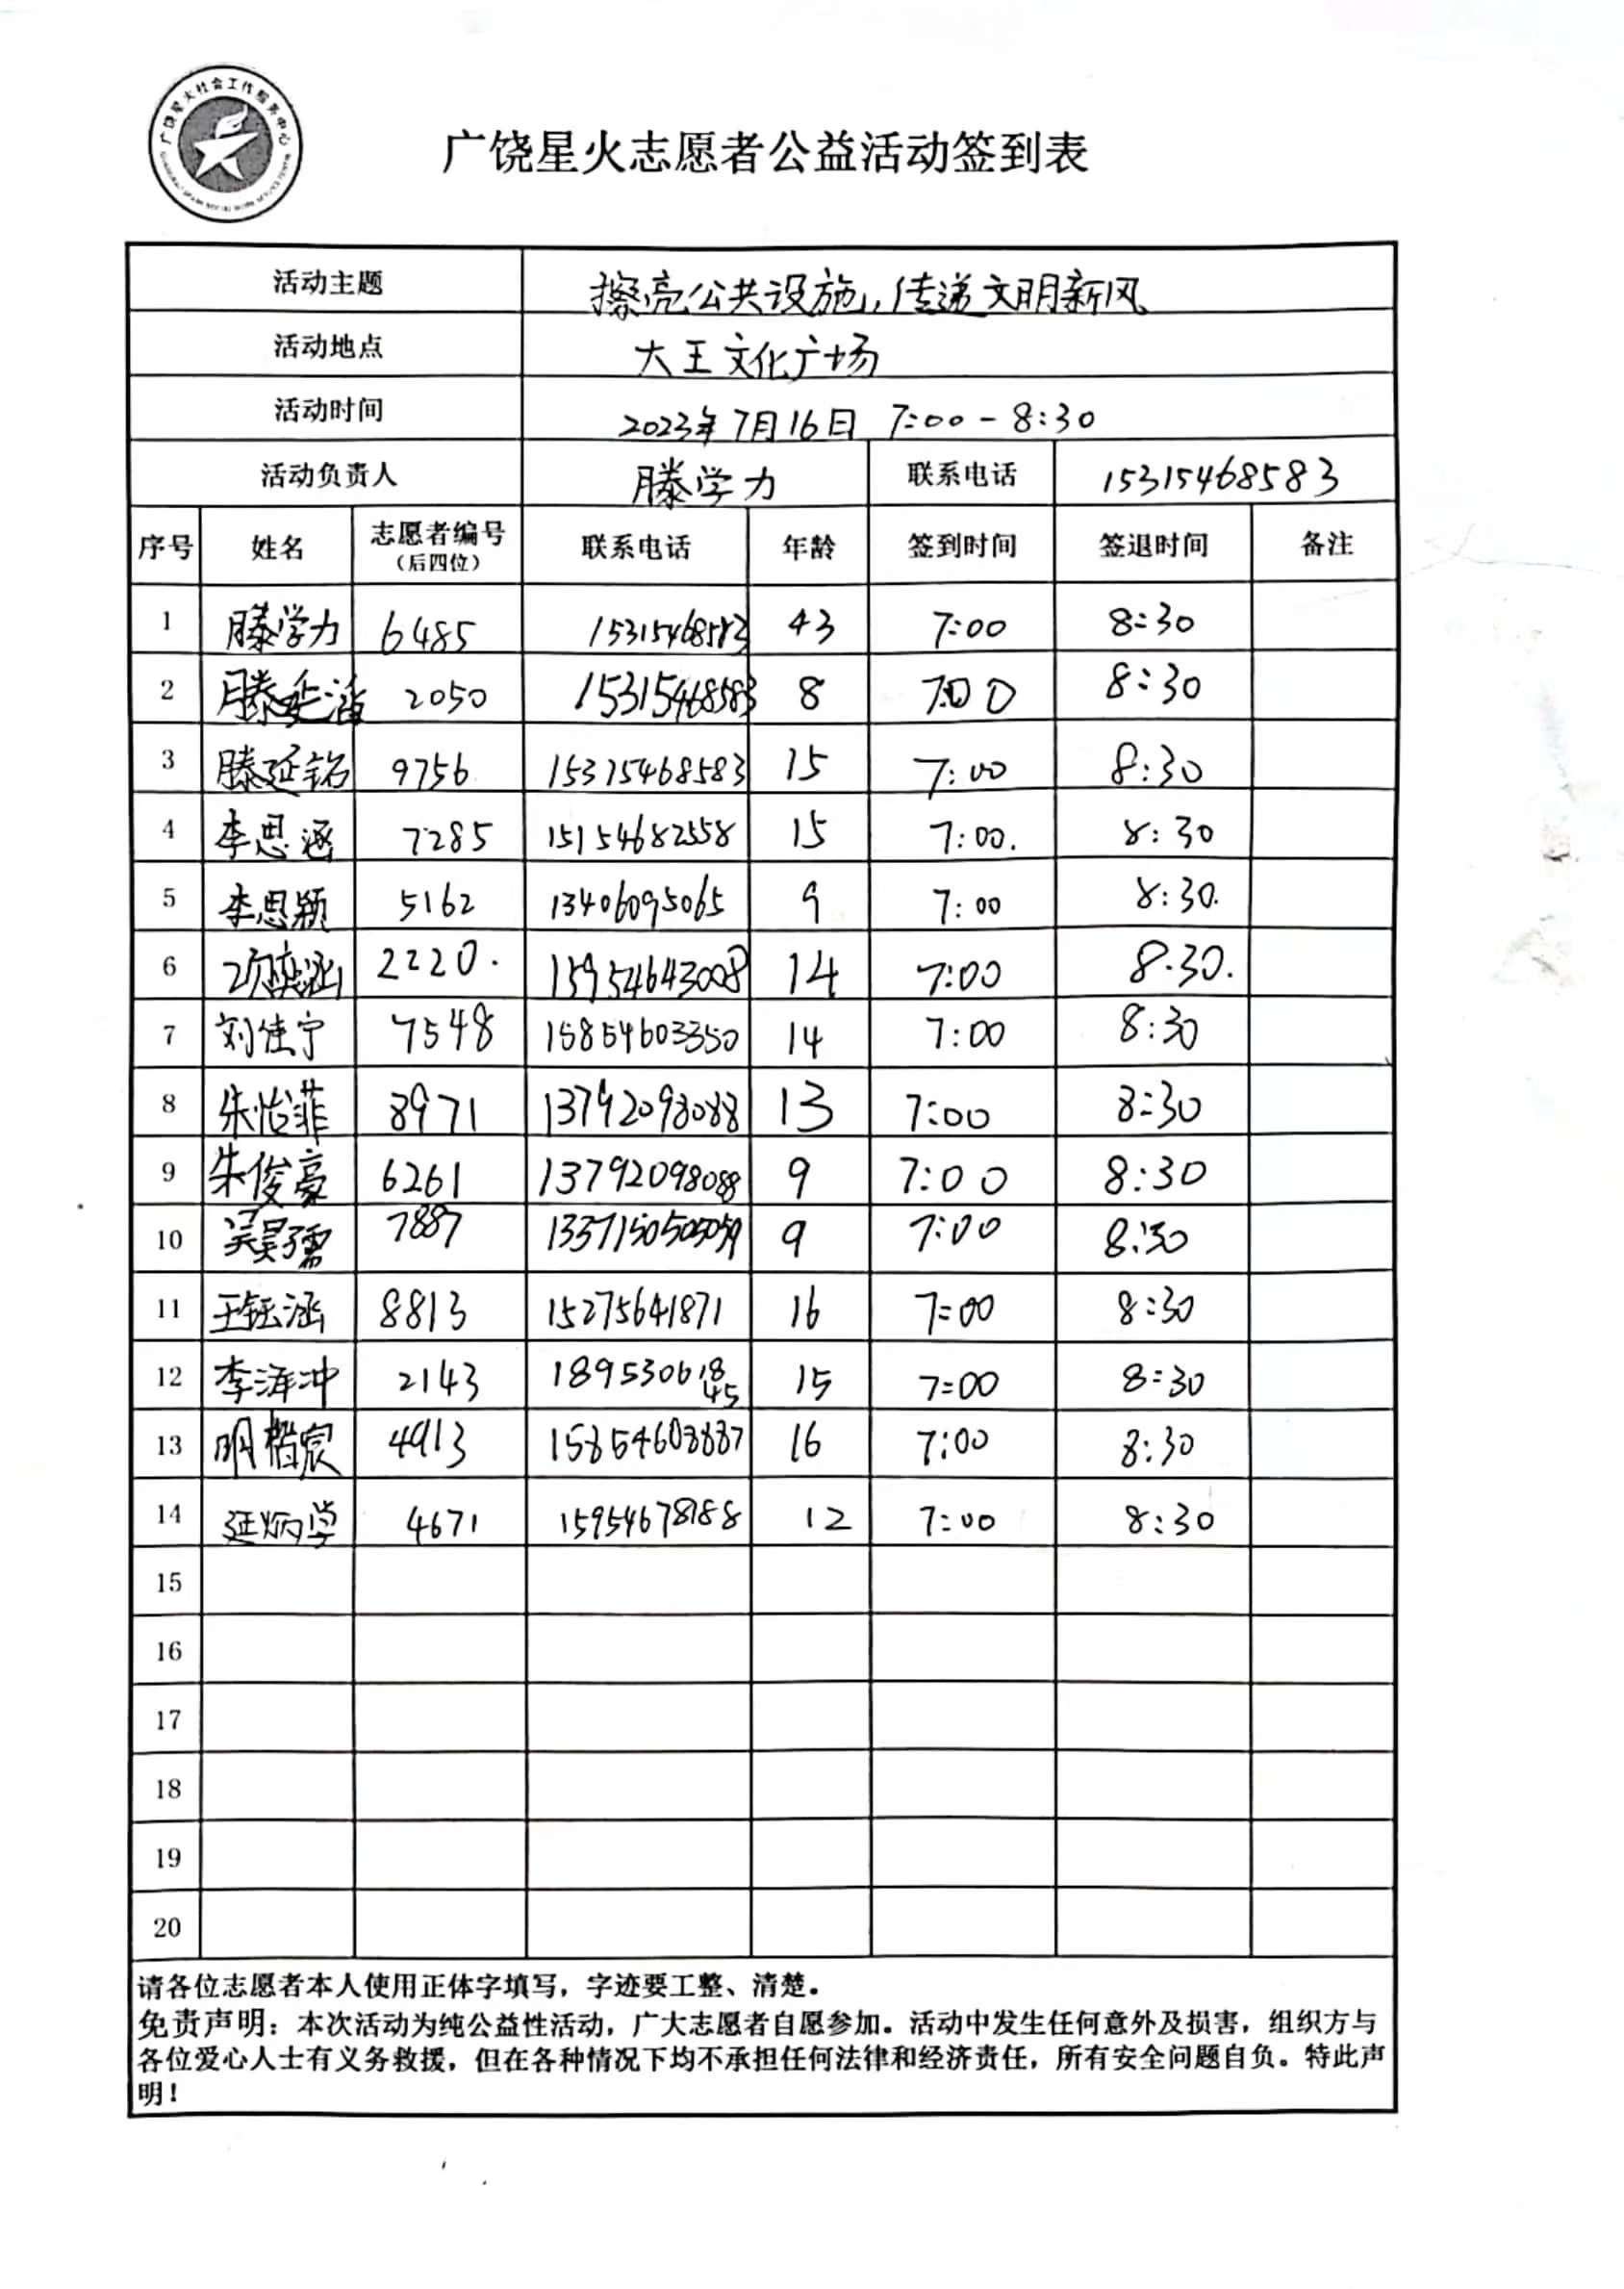 广饶星火社会工作服务中心
广饶星火志愿者公益活动签到表
活动主题 擦亮公共设施,传递文明新风
活动地点 大王文化广场
活动时间 2023年7月16日 7:00-8:30
活动负责人 滕学力 联系电话 15315468583
序号 姓名 志愿者编号(后四位) 联系电话 年龄 签到时间 签退时间 备注
1 滕学力 6485 15315468583 43 7:00 8:30
2 2050 15315468583 8 7:00 8:30
3 滕延铭 9756 15315468583 15 7:00 8:30
4 李思涵 7285 15154682558 15 7:00. 8:30
5 李思颖 5162 13406095065 9 7:00 8:30.
6 2220. 15954643008 14 7:00 8.30.
7 刘佳宁 7548 15854603350 14 7:00 8:30
8 朱怡菲 8971 13792098088 13 7:00 8:30
9 朱俊豪 6261 13792098088 9 7:00 8:30
10 7887 9 7:00 8:30
11 王钰涵 8813 15275641871 16 7:00 8:30
12 李泽冲 2143 18953061845 15 7:00 8:30
13 明楷宸 4913 15854603887 16 7:00 8:30
14 延炳学 4671 15954678188 12 7:00 8:30
15
16
17
18
19
20
请各位志愿者本人使用正体字填写，字迹要工整、清楚。
免责声明：本次活动为纯公益性活动，广大志愿者自愿参加。活动中发生任何意外及损害，组织方与
各位爱心人士有义务救援，但在各种情况下均不承担任何法律和经济责任，所有安全问题自负。特此声
明！